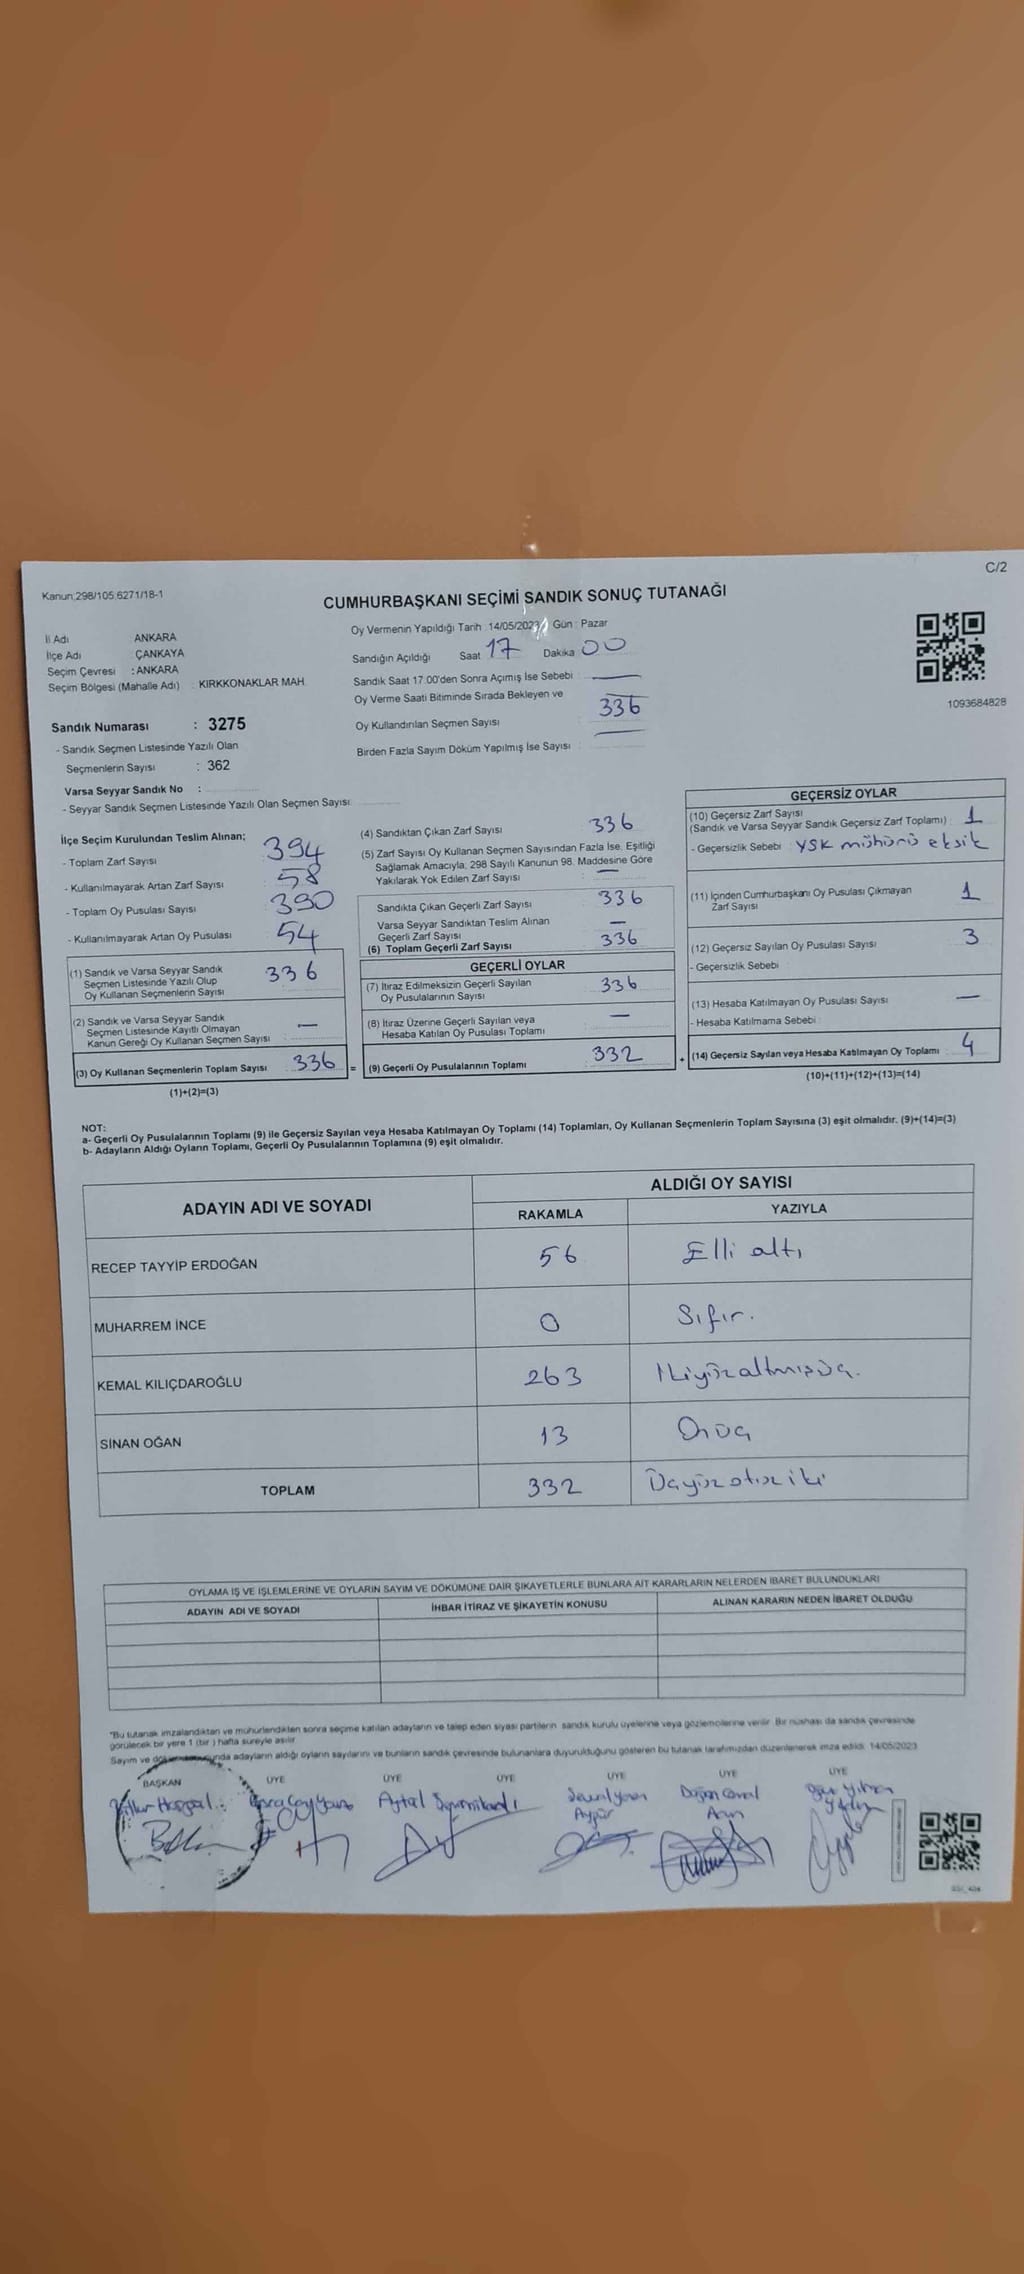 C/2
Kanun:298/105:6271/18-1
CUMHURBAŞKANI SEÇİMİ SANDIK SONUÇ TUTANAĞI
İl Adı ANKARA
İlçe Adı ÇANKAYA
Seçim Çevresi : ANKARA
Seçim Bölgesi (Mahalle Adı) : KIRKKONAKLAR MAH.
Oy Vermenin Yapıldığı Tarih :14/05/2023 Gün : Pazar
Sandığın Açıldığı Saat 17 Dakika 00
Sandık Saat 17.00'den Sonra Açımış İse Sebebi :
Oy Verme Saati Bitiminde Sırada Bekleyen ve
Oy Kullandırılan Seçmen Sayısı 336
Birden Fazla Sayım Döküm Yapılmış İse Sayısı :
1093684828
Sandık Numarası : 3275
- Sandık Seçmen Listesinde Yazılı Olan
Seçmenlerin Sayısı : 362
Varsa Seyyar Sandık No :
- Seyyar Sandık Seçmen Listesinde Yazılı Olan Seçmen Sayısı:
İlçe Seçim Kurulundan Teslim Alınan;
- Toplam Zarf Sayısı 394
- Kullanılmayarak Artan Zarf Sayısı 58
- Toplam Oy Pusulası Sayısı 390
- Kullanılmayarak Artan Oy Pusulası 54
(1) Sandık ve Varsa Seyyar Sandık
Seçmen Listesinde Yazılı Olup
Oy Kullanan Seçmenlerin Sayısı 336
(2) Sandık ve Varsa Seyyar Sandık
Seçmen Listesinde Kayıtlı Olmayan
Kanun Gereği Oy Kullanan Seçmen Sayısı : —
(3) Oy Kullanan Seçmenlerin Toplam Sayısı 336
(1)+(2)=(3)
(4) Sandıktan Çıkan Zarf Sayısı 336
(5) Zarf Sayısı Oy Kullanan Seçmen Sayısından Fazla İse, Eşitliği
Sağlamak Amacıyla, 298 Sayılı Kanunun 98. Maddesine Göre
Yakılarak Yok Edilen Zarf Sayısı : —
Sandıkta Çıkan Geçerli Zarf Sayısı 336
Varsa Seyyar Sandıktan Teslim Alınan
Geçerli Zarf Sayısı —
(6) Toplam Geçerli Zarf Sayısı 336
GEÇERLİ OYLAR
(7) İtiraz Edilmeksizin Geçerli Sayılan
Oy Pusulalarının Sayısı 336
(8) İtiraz Üzerine Geçerli Sayılan veya
Hesaba Katılan Oy Pusulası Toplamı —
= (9) Geçerli Oy Pusulalarının Toplamı 332
GEÇERSİZ OYLAR
(10) Geçersiz Zarf Sayısı
(Sandık ve Varsa Seyyar Sandık Geçersiz Zarf Toplamı) : 1
- Geçersizlik Sebebi : YSK mührü eksik
(11) İçinden Cumhurbaşkanı Oy Pusulası Çıkmayan
Zarf Sayısı 1
(12) Geçersiz Sayılan Oy Pusulası Sayısı 3
- Geçersizlik Sebebi :
(13) Hesaba Katılmayan Oy Pusulası Sayısı —
- Hesaba Katılmama Sebebi :
+ (14) Geçersiz Sayılan veya Hesaba Katılmayan Oy Toplamı 4
(10)+(11)+(12)+(13)=(14)
NOT:
a- Geçerli Oy Pusulalarının Toplamı (9) ile Geçersiz Sayılan veya Hesaba Katılmayan Oy Toplamı (14) Toplamları, Oy Kullanan Seçmenlerin Toplam Sayısına (3) eşit olmalıdır. (9)+(14)=(3)
b- Adayların Aldığı Oyların Toplamı, Geçerli Oy Pusulalarının Toplamına (9) eşit olmalıdır.
ADAYIN ADI VE SOYADI ALDIĞI OY SAYISI
RAKAMLA YAZIYLA
RECEP TAYYİP ERDOĞAN 56 Elli altı
MUHARREM İNCE 0 Sıfır.
KEMAL KILIÇDAROĞLU 263 İkiyüzaltmışüç.
SİNAN OĞAN 13 Onüç
TOPLAM 332 Üçyüzotuziki
OYLAMA İŞ VE İŞLEMLERİNE VE OYLARIN SAYIM VE DÖKÜMÜNE DAİR ŞİKAYETLERLE BUNLARA AİT KARARLARIN NELERDEN İBARET BULUNDUKLARI
ADAYIN ADI VE SOYADI İHBAR İTİRAZ VE ŞİKAYETİN KONUSU ALINAN KARARIN NEDEN İBARET OLDUĞU
"Bu tutanak imzalandıktan ve mühürlendikten sonra seçime katılan adayların ve talep eden siyasi partilerin sandık kurulu üyelerine veya gözlemcilerine verilir. Bir nüshası da sandık çevresinde
görülecek bir yere 1 (bir ) hafta süreyle asılır.
Sayım ve adayların aldığı oyların sayılarını ve bunların sandık çevresinde bulunanlara duyurulduğunu gösteren bu tutanak tarafımızdan düzenlenerek imza edildi. 14/05/2023
BAŞKAN ÜYE ÜYE ÜYE ÜYE ÜYE ÜYE
Aytal